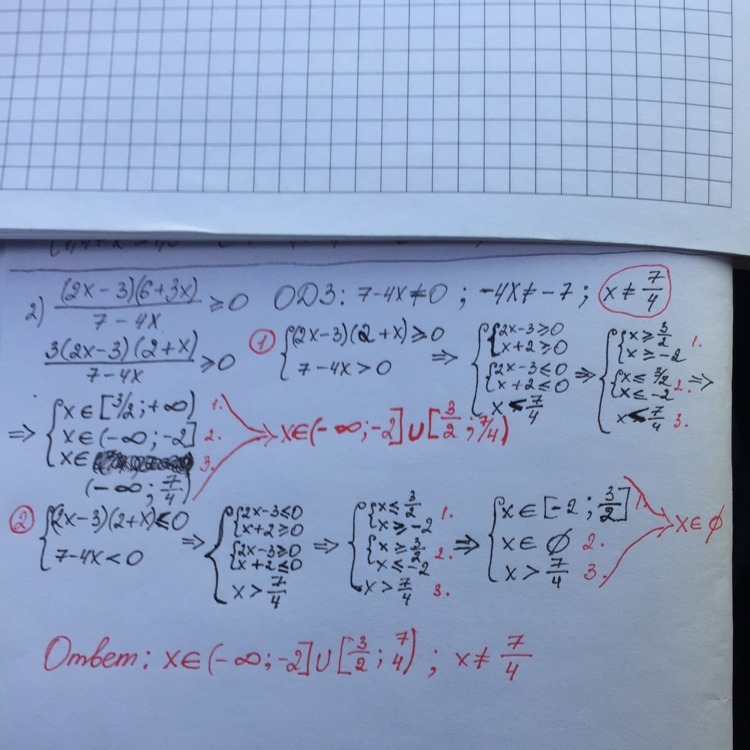 2) (2x-3)(6+3x) / 7-4x ⩾ 0 ОДЗ: 7-4x≠0 ; -4x≠-7 ; x≠ 7/4
3(2x-3)(2+x) / 7-4x ⩾ 0
① { (2x-3)(2+x)⩾0
7-4x>0
⇒ { { 2x-3⩾0
x+2⩾0
{ 2x-3⩽0
x+2⩽0
x< 7/4
⇒ { { x⩾ 3/2 1.
x⩾-2
{ x⩽ 3/2 2.
x⩽-2
x< 7/4 3.
⇒
⇒ { x∈[3/2;+∞) 1.
x∈(-∞;-2] 2.
x∈ 3.
(-∞; 7/4)
x∈(-∞;-2]∪[3/2; 7/4)
② { (2x-3)(2+x)⩽0
7-4x<0
⇒ { { 2x-3⩽0
x+2⩾0
{ 2x-3⩾0
x+2⩽0
x> 7/4
⇒ { { x⩽ 3/2 1.
x⩾-2
{ x⩾ 3/2 2.
x⩽-2
x> 7/4 3.
⇒ { x∈[-2; 3/2] 1.
x∈∅ 2.
x> 7/4 3.
x∈∅
Ответ: x∈(-∞;-2]∪[3/2; 7/4) ; x≠ 7/4